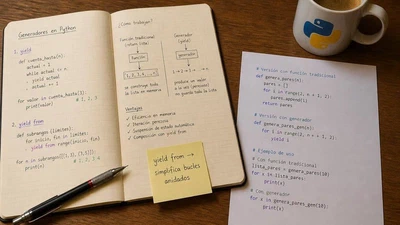 Generadores en Python
1. yield
def cuenta_hasta(n):
actual = 1
while actual <= n:
yield actual
actual += 1
for valor in cuenta_hasta(3):
print(valor) # 1, 2, 3
2. yield from
def subrangos(limites):
for inicio, fin in limites:
yield from range(inicio, fin)
print(x)
¿Cómo trabajan?
Función tradicional
función
Generador
generador
se construye toda
la lista en memoria
Ventajas
✓ Eficiencia en memoria
✓ Iteración perezosa
✓ Suspensión de estado automático
✓ Composición con yield from
yield from →
simplifica bucles
anidados
# Versión con función tradicional
def genera_pares(n):
pares = []
for i in range(2, n + 1, 2):
pares.append(i)
return pares
# Versión con generador
def genera_pares_gen(n):
for i in range(2, n + 1, 2):
yield i
# Ejemplo de uso
# Con función tradicional
lista_pares = genera_pares(10)
for x in lista_pares:
print(x)
# Con generador
for x in genera_pares_gen(10):
print(x)